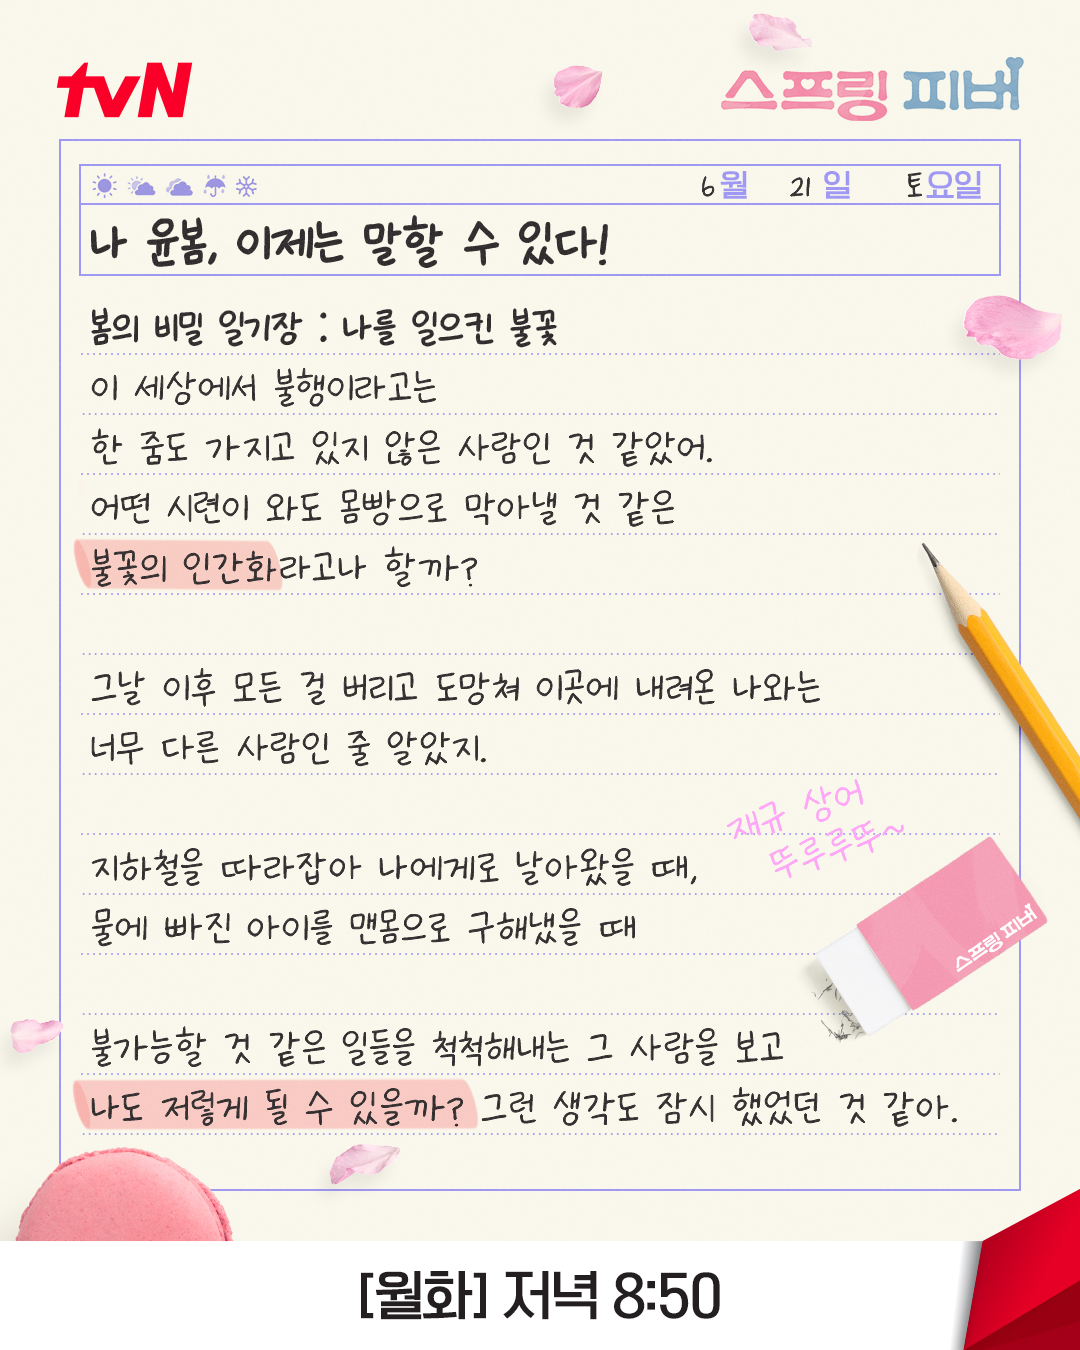 tvN
스프링 피버
6월 21일 토요일
나 윤봄, 이제는 말할 수 있다!
봄의 비밀 일기장 : 나를 일으킨 불꽃
이 세상에서 불행이라고는
한 줌도 가지고 있지 않은 사람인 것 같았어.
어떤 시련이 와도 몸빵으로 막아낼 것 같은
불꽃의 인간화라고나 할까?
그날 이후 모든 걸 버리고 도망쳐 이곳에 내려온 나와는
너무 다른 사람인 줄 알았지.
재규 상어
뚜루루뚜~
지하철을 따라잡아 나에게로 날아왔을 때,
물에 빠진 아이를 맨몸으로 구해냈을 때
스프링 피버
불가능할 것 같은 일들을 척척해내는 그 사람을 보고
나도 저렇게 될 수 있을까? 그런 생각도 잠시 했었던 것 같아.
[월화] 저녁 8:50